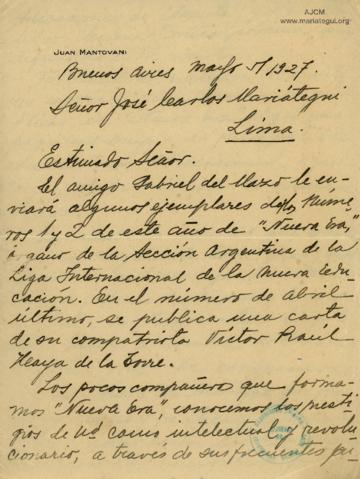 AJCM
www.mariategui.org
JUAN MANTOVANI
Buenos Aires Mayo 5/1927.
Señor José Carlos Mariátegui
Lima.
Estimado Señor.
El amigo Gabriel del Mazo le en-
viará algunos ejemplares de los Núme-
ros 1 y 2 de este año de "Nueva Era,"
órgano de la Sección Argentina de la
Liga Internacional de la Nueva Edu-
cación. En el número de Abril
último, se publica una carta
de su compatriota Víctor Raúl
Haya de la Torre.
Los pocos compañeros que forma-
mos "Nueva Era", conocemos los presti-
gios de Ud como intelectual y revolu-
cionario, a través de sus frecuentes pu-